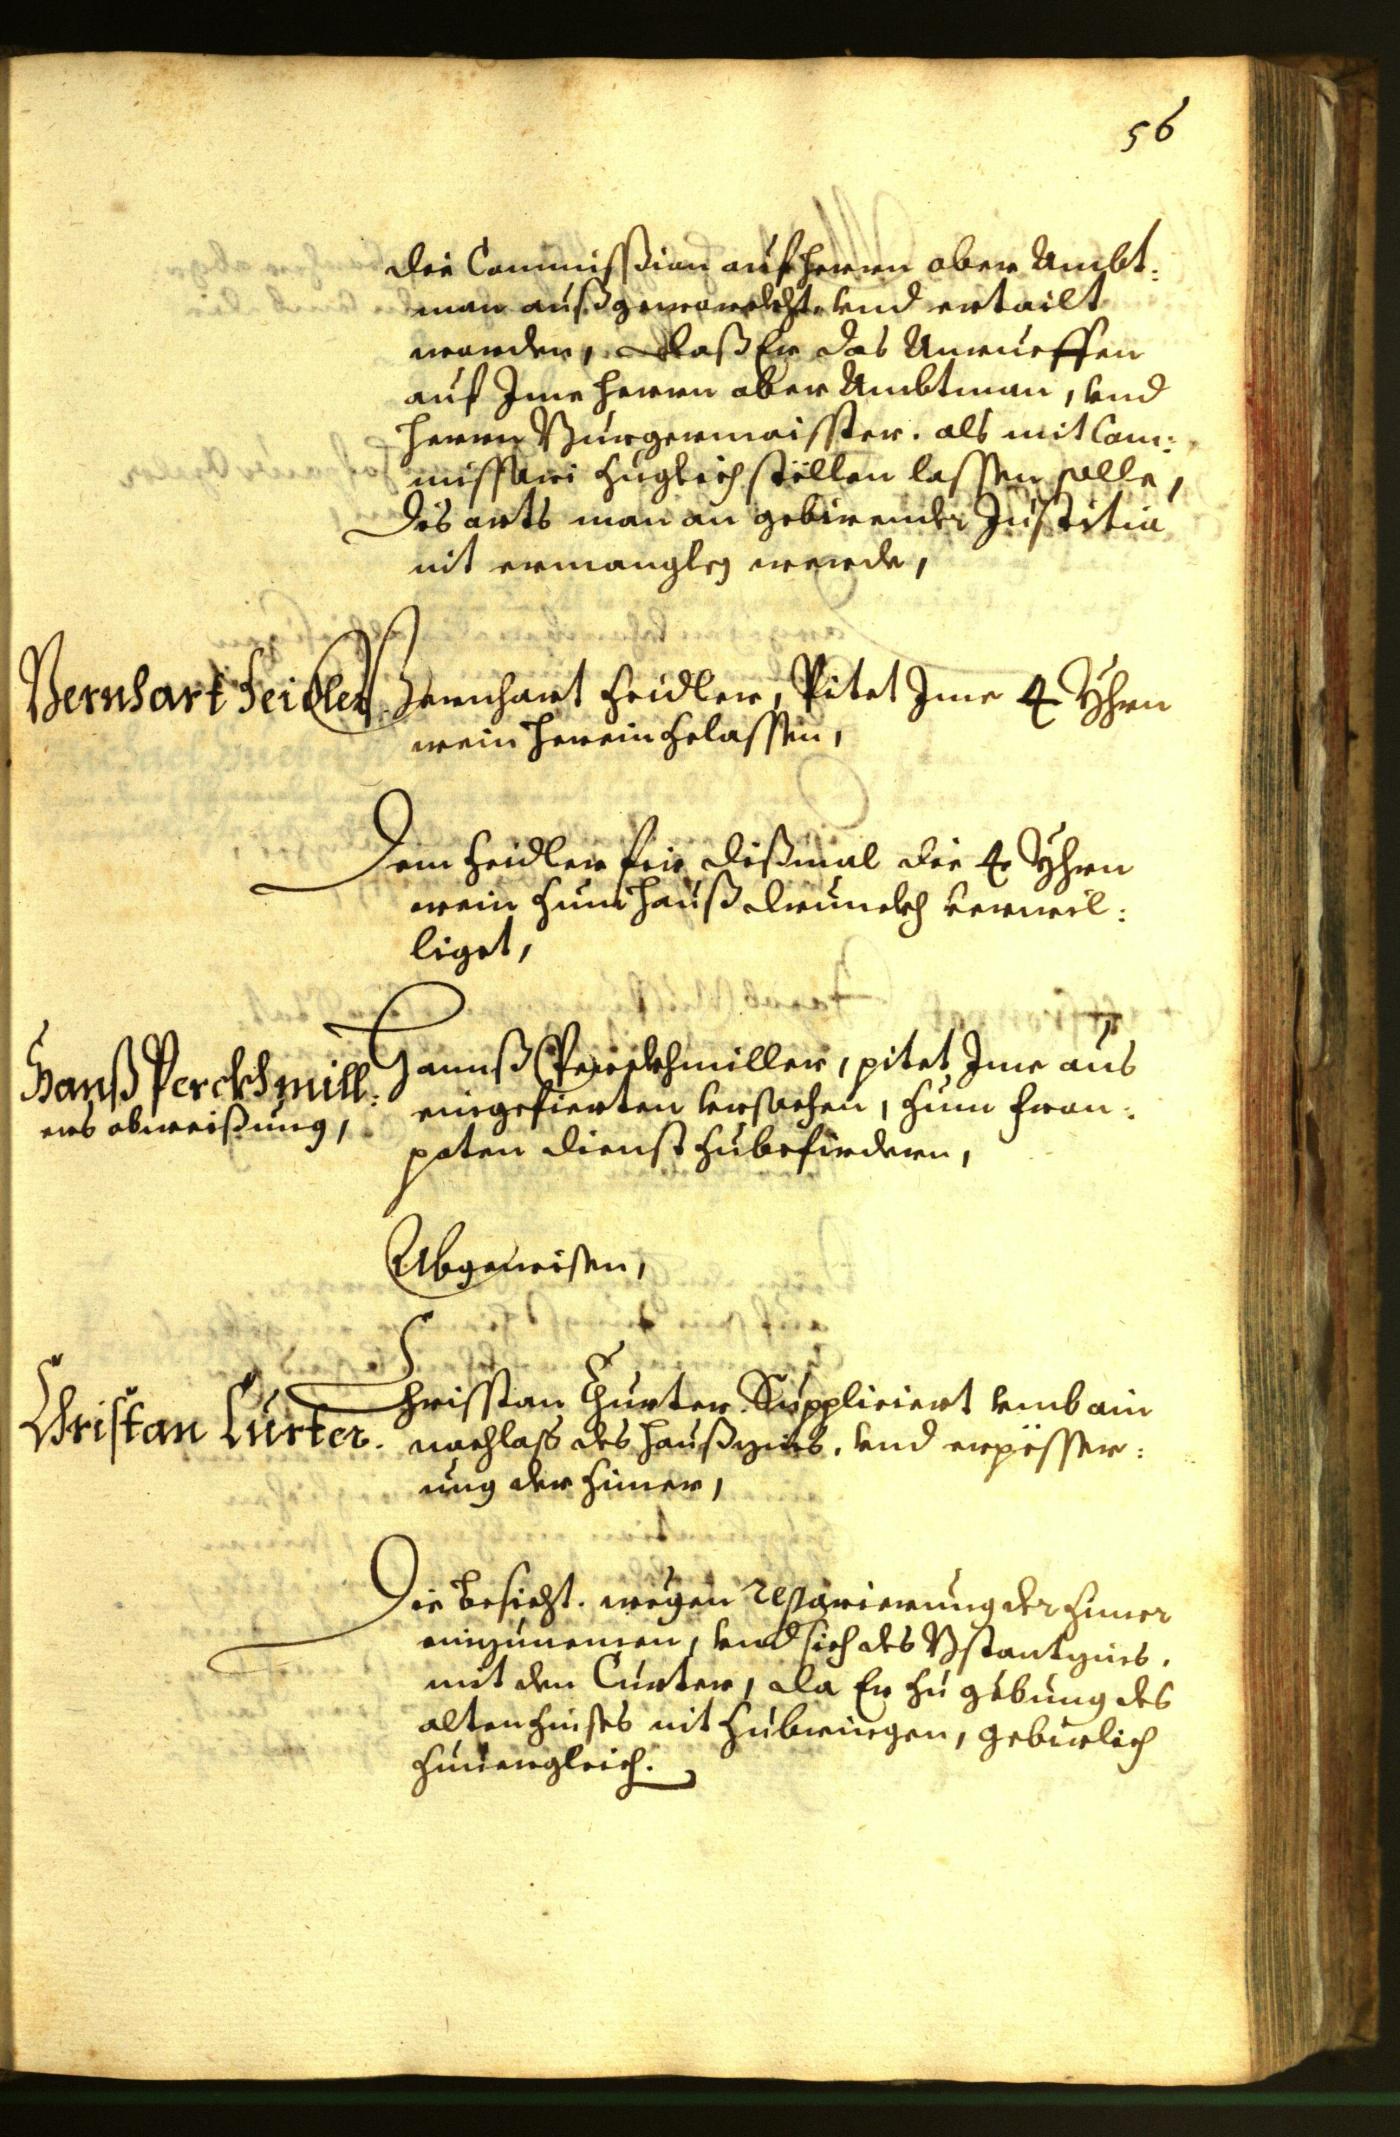 56
die Commissßion auf herrn ober Ambt-
man außgewürckht vnd ertailt
worden, daß Er das Anrueffen
auf Ime herrn ober Ambtman, vnd
herrn Burgermaister. als mit Com-
missari zugleich stöllen lassen solle,
Dis orts man an gebirender Justitia
nit ermanglen werde,
Bernhart Zeidler
Bernnhart Zeidler, Pitet Ime 4 Yhrn
wein herein zelassen,
Dem Zeidler fir dißmal die 4 Yhrn
wein zum haußdrunckh verwil-
liget,
Hanß Perckhmill-
ers abweißung,
Hannß Perckhmiller, pitet Ime aus
eingefierten vrsachen, zum fron-
poten dienst zubefirdern,
Abgewisen,
Christan Curter.
Christan Churter. Suppliciert vmb ain
nachlass des haußzins. vnd erpösser-
ung der Zimer,
Die besicht. wegen reparierung der Zimer
einzunemen, vnd sich des Bstantzins.
mit den Curter, da Er zu gebung des
alten Zinses nit zubringen, gebirlich
zuuergleich.